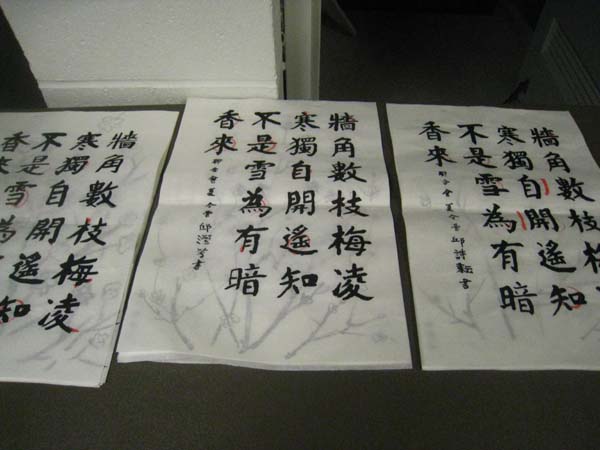 牆角數枝梅凌
寒獨自開遙知
不是雪為
香來
牆角數枝梅凌
寒獨自開遙知
不是雪為有暗
香來
夏令營 邱 書
牆角數枝梅
寒獨自開遙知
不是雪為有暗
香來
夏令營 邱詩 書